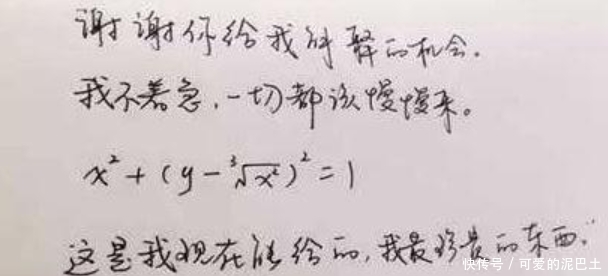 谢谢你给我解释的机会.
我不着急,一切都该慢慢来。
x² + (y - ³√x²)² = 1
这是我现在能给的,我最珍贵的东西.
快传号 / 可爱的泥巴土